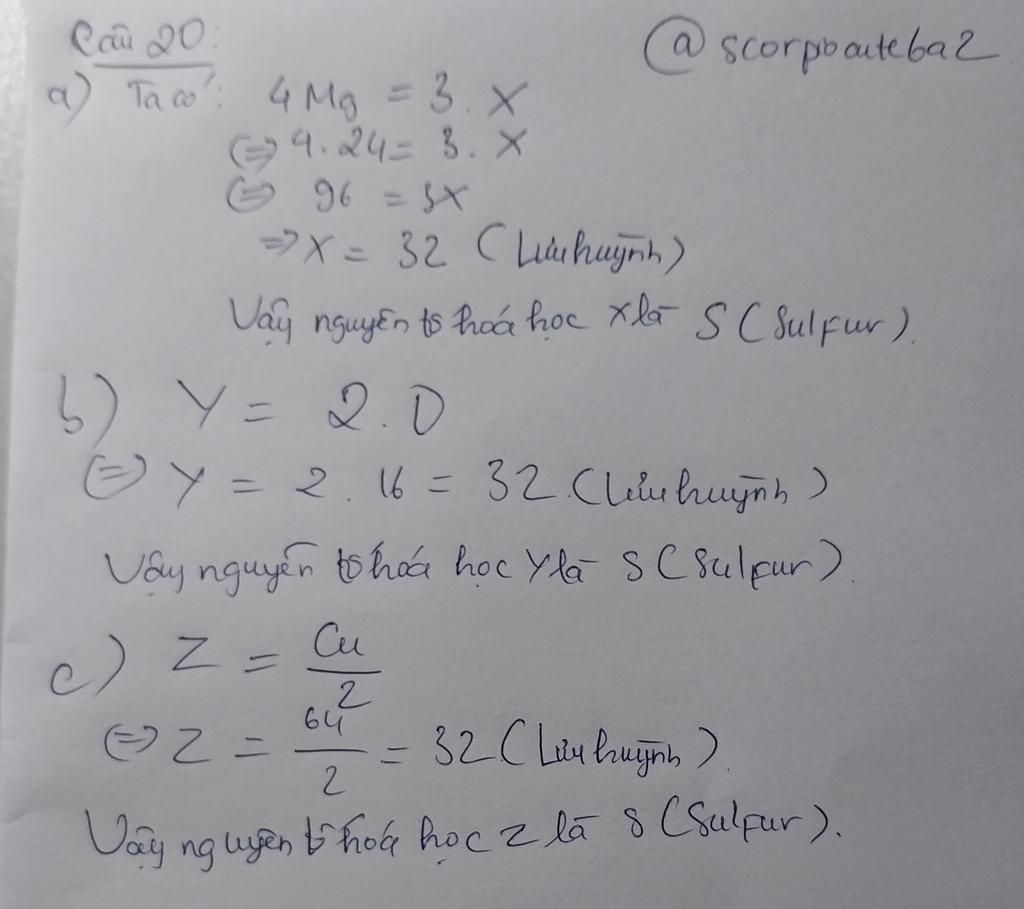 Câu 20:
@scorpoauteba2
a) Ta có: 4Mg = 3. X
(=) 4. 24 = 3. X
(=) 96 = 3X
=> X = 32 (Lưu huỳnh)
Vậy nguyên tố hoá học X là S (Sulfur).
b) Y = 2. O
(=) Y = 2. 16 = 32. (Lưu huỳnh)
Vậy nguyên tố hoá học Y là S (Sulfur).
c) Z = Cu/2
(=) Z = 64/2 = 32 (Lưu huỳnh).
Vậy nguyên tố hoá học Z là S (Sulfur).